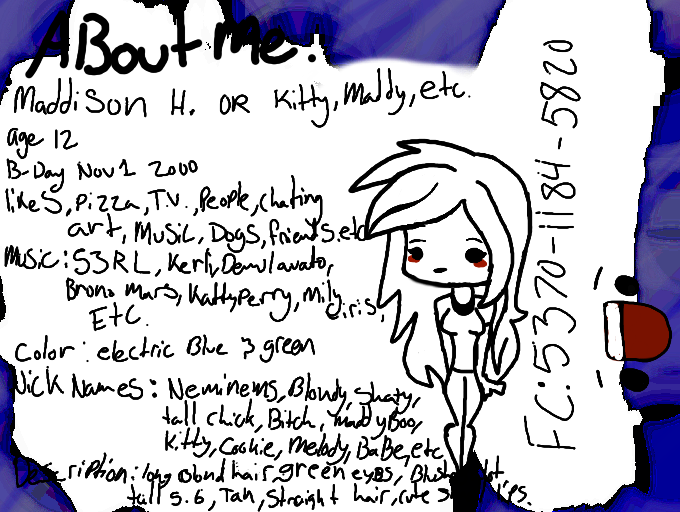 ABout Me!
Maddison H. OR Kitty, Maddy, etc.
age 12
B-Day Nov 1 2000
likes, Pizza, TV., People, chating
art, Music, Dogs, friends.etc
Music: S3RL, Kerli, Demi lavato,
Bruno Mars, KattyPerry, Mily
Ciris,
ETC.
Color: electric Blue & green
Nick Names: Neminems, Blondy, Shaty,
tall chick, Bitch, maddyBoo,
Kitty, Cookie, Melody, BaBe, etc
Description: long Blond hair, green eyes,
tall 5.6, Tan, Straight hair, cute
FC: 5370-1184-5820